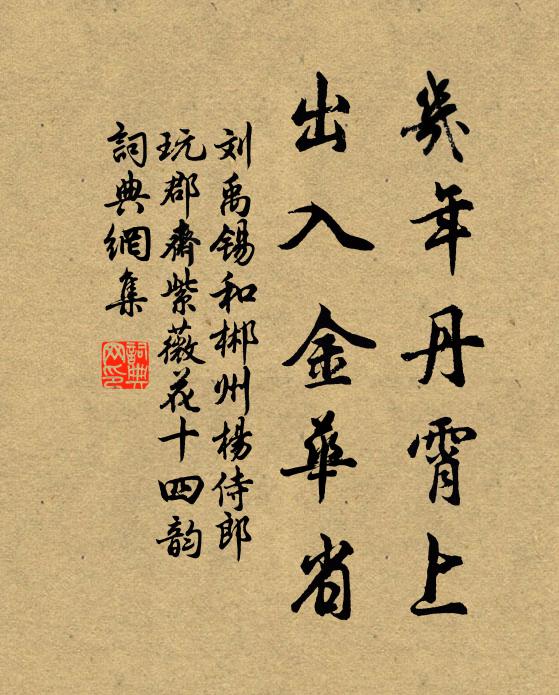 幾年丹霄上
出入金華省
刘禹锡和郴州楊侍郎
玩郡齋紫薇花十四韵
詞典網集
詞典网印